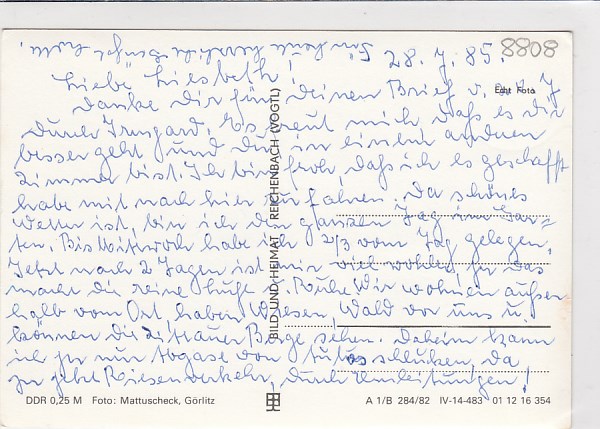 28.7.85. 8808
Liebe Liesbeth!
Echt Foto
Danke Dir für Deinen Brief v. 24.7
durch Irmgard. Es freut mich daß es dir
besser geht und du in einem anderen
Zimmer bist. Ich bin froh, daß ich es geschafft
habe mit nach hier zu fahren. Da schönes
Wetter ist, bin ich den ganzen Tag im Gar-
ten. Bis Mittwoch habe ich 2/3 vom Tag gelegen,
Jetzt nach 2 Tagen ist mir viel wohler, ja das
macht die reine Luft u. Ruhe. Wir wohnen außer
halb vom Ort, haben Wiesen, Wald vor uns u.
können die Zittauer Berge sehen. Daheim kann
ich ja nur Abgase von Autos schlucken, da
ja jetzt Riesenverkehr, durch Umleitungen!
BILD UND HEIMAT REICHENBACH (VOGTL)
DDR 0,25 M Foto: Mattuscheck, Görlitz
A 1/B 284/82 IV-14-483 01 12 16 354